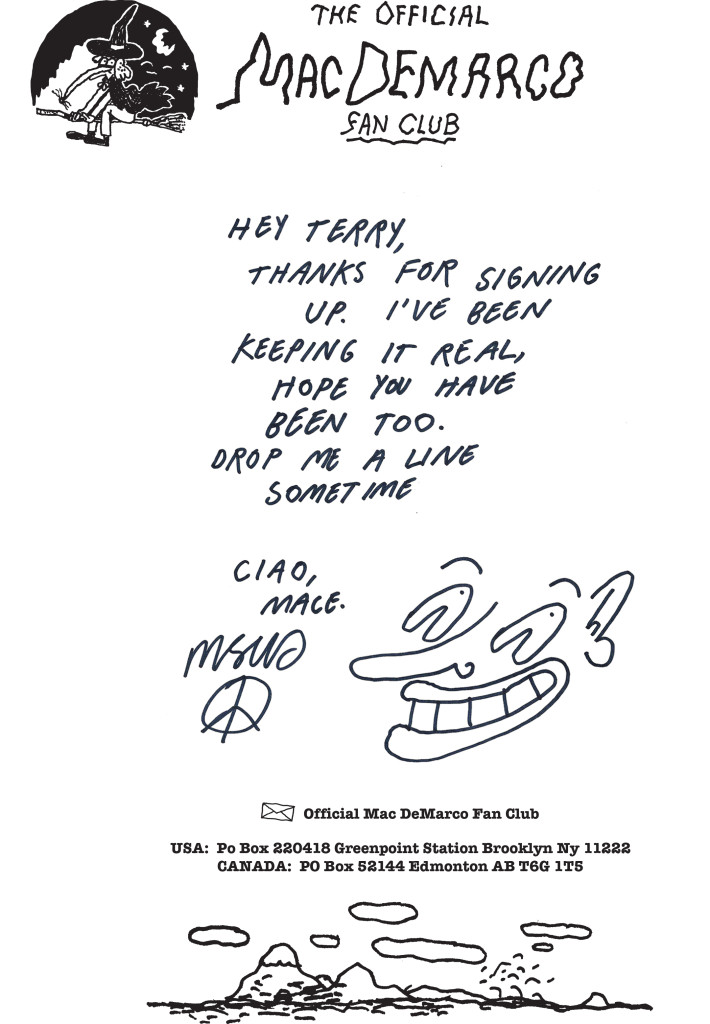 THE OFFICIAL
MAC DEMARCO
FAN CLUB
HEY TERRY,
THANKS FOR SIGNING
UP. I'VE BEEN
KEEPING IT REAL,
HOPE YOU HAVE
BEEN TOO.
DROP ME A LINE
SOMETIME
CIAO,
MACE.
Official Mac DeMarco Fan Club
USA: Po Box 220418 Greenpoint Station Brooklyn Ny 11222
CANADA: PO Box 52144 Edmonton AB T6G 1T5